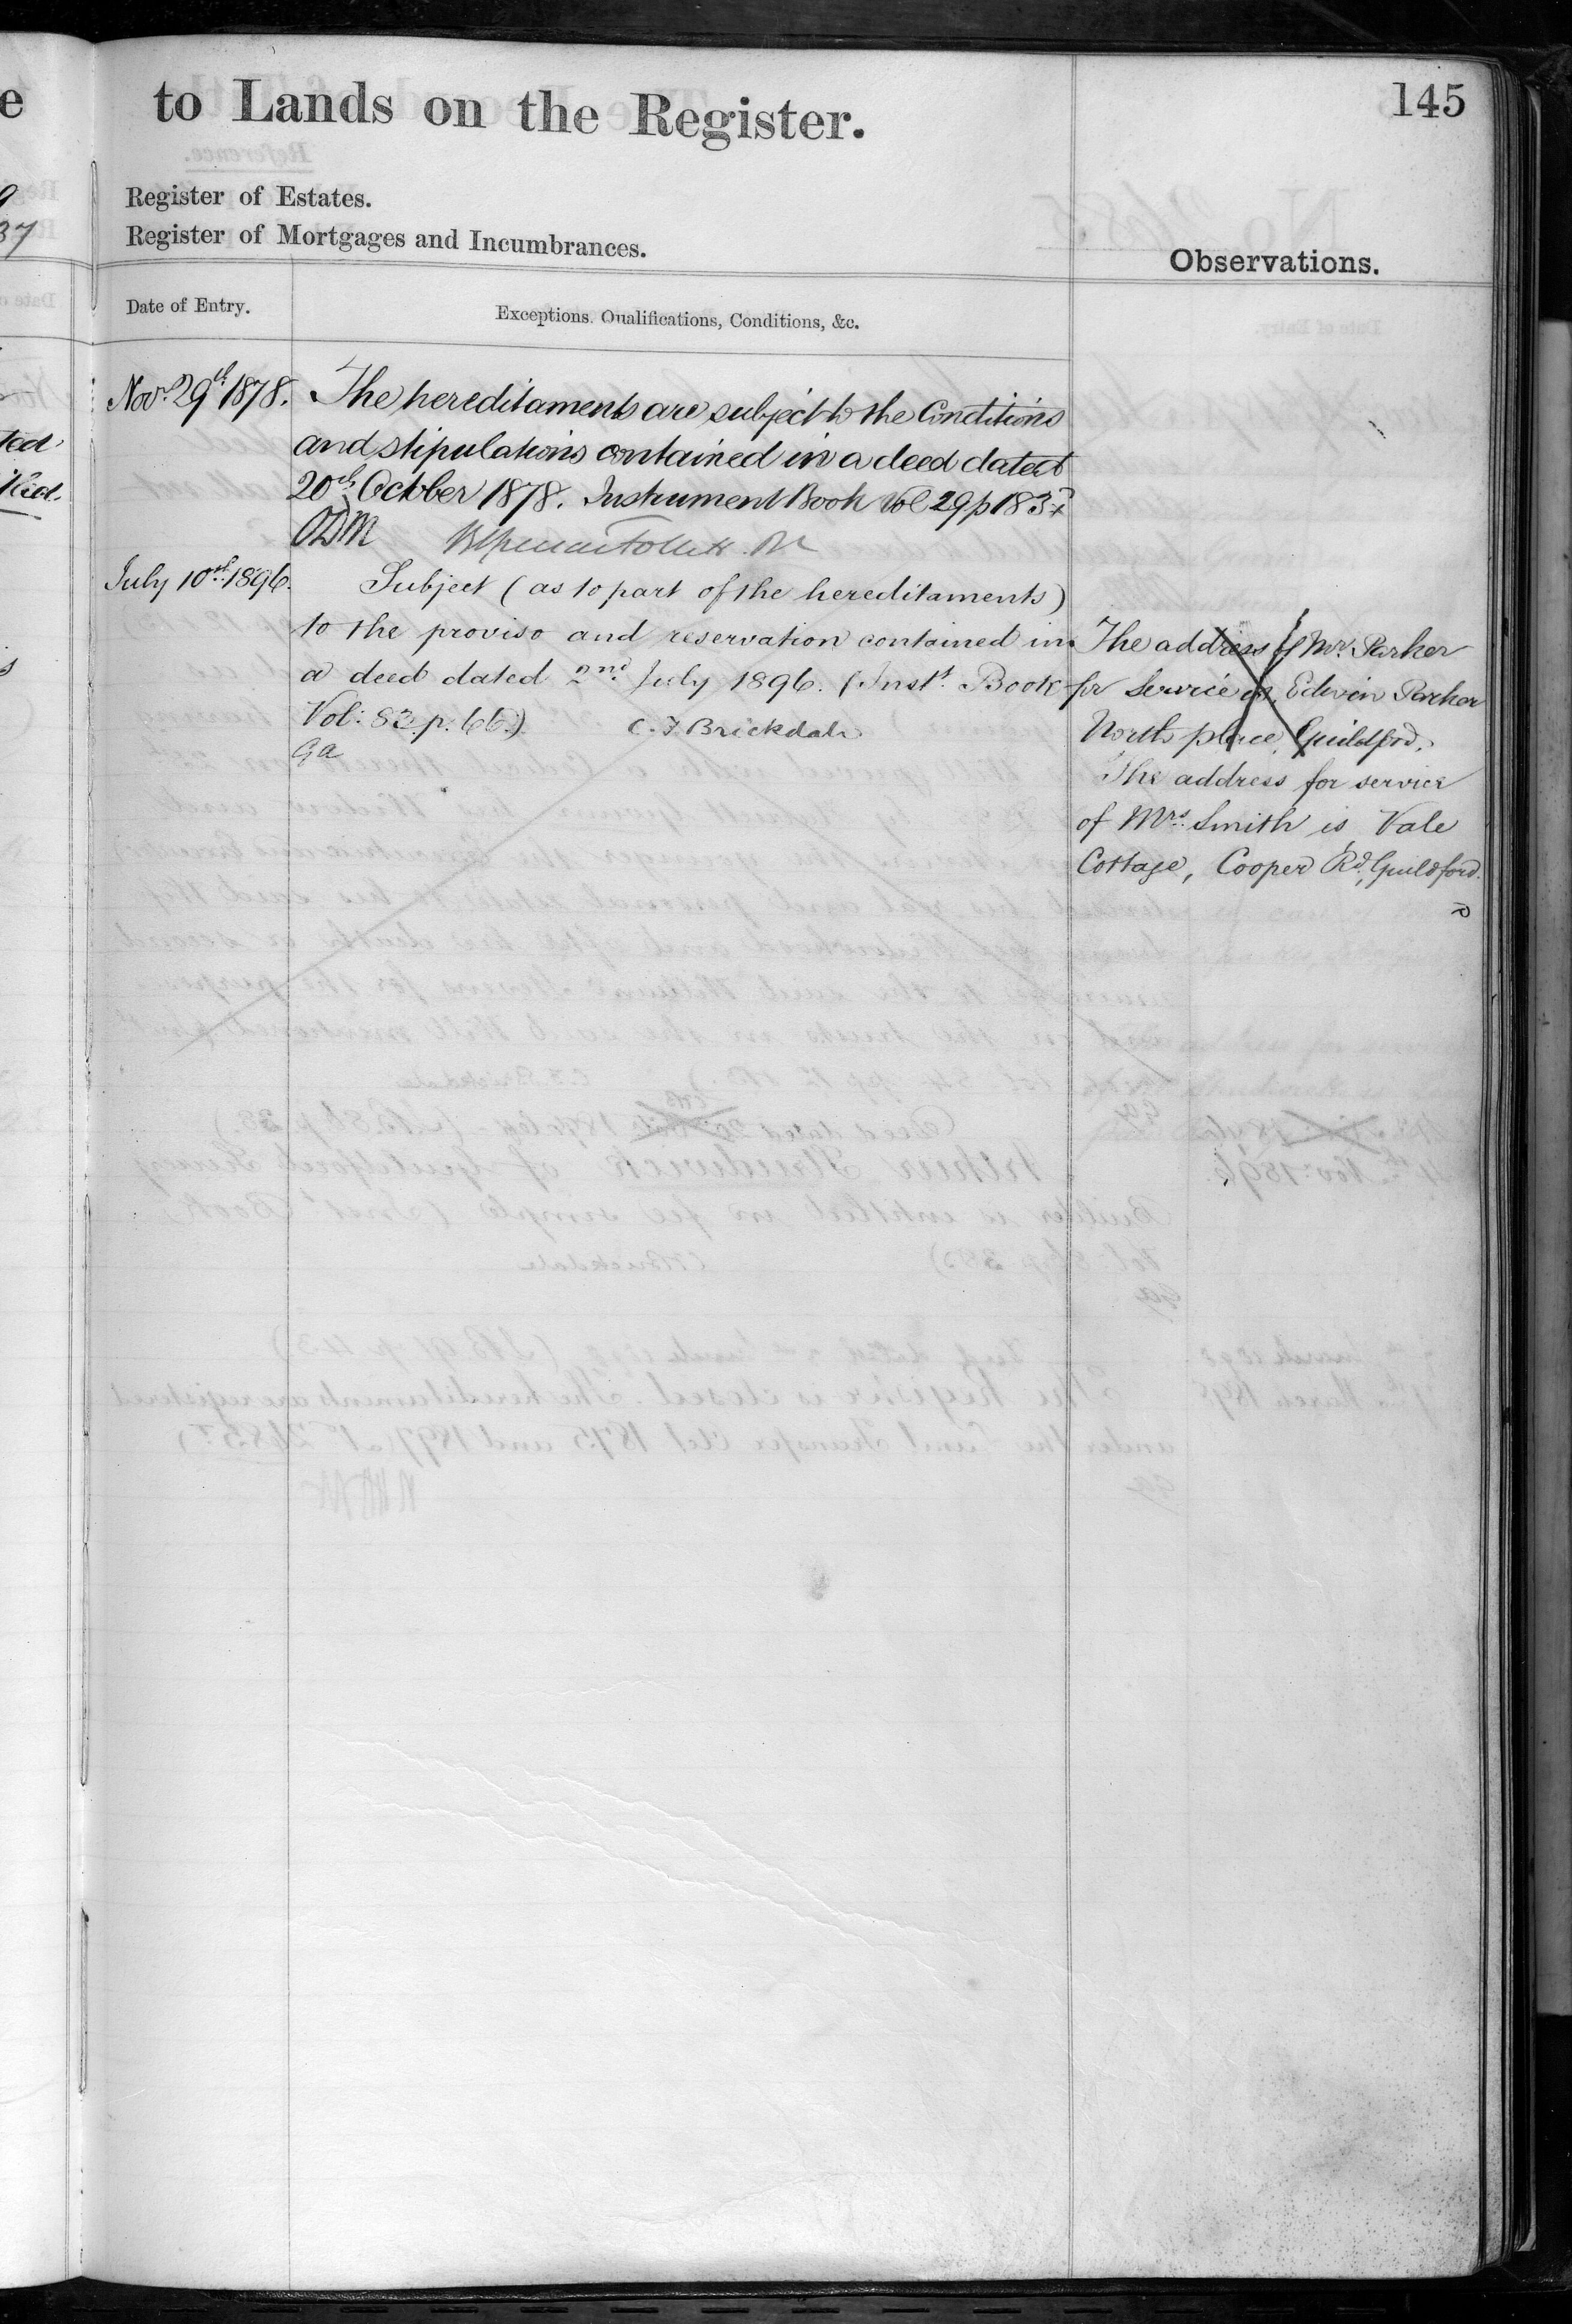 to Lands on the Register.
145
Register of Estates.
Register of Mortgages and Incumbrances.
Observations.
Date of Entry.
Exceptions. Qualifications, Conditions, &c.
Novr 29th 1878. The hereditaments are subject to the Conditions
and stipulations contained in a deed dated
20th October 1878. Instrument Book Vol 29 p 183
ODM
July 10th 1896. Subject (as to part of the hereditaments)
to the proviso and reservation contained in
a deed dated 2nd July 1896. (Instt. Book
Vol: 83 p. 66.) C. F Brickdale
Ga
The address of Mr. Parker
for Service is, Edwin Parker
North place, Guildford.
The address for service
of Mrs. Smith is Vale
Cottage, Cooper Rd, Guildford.